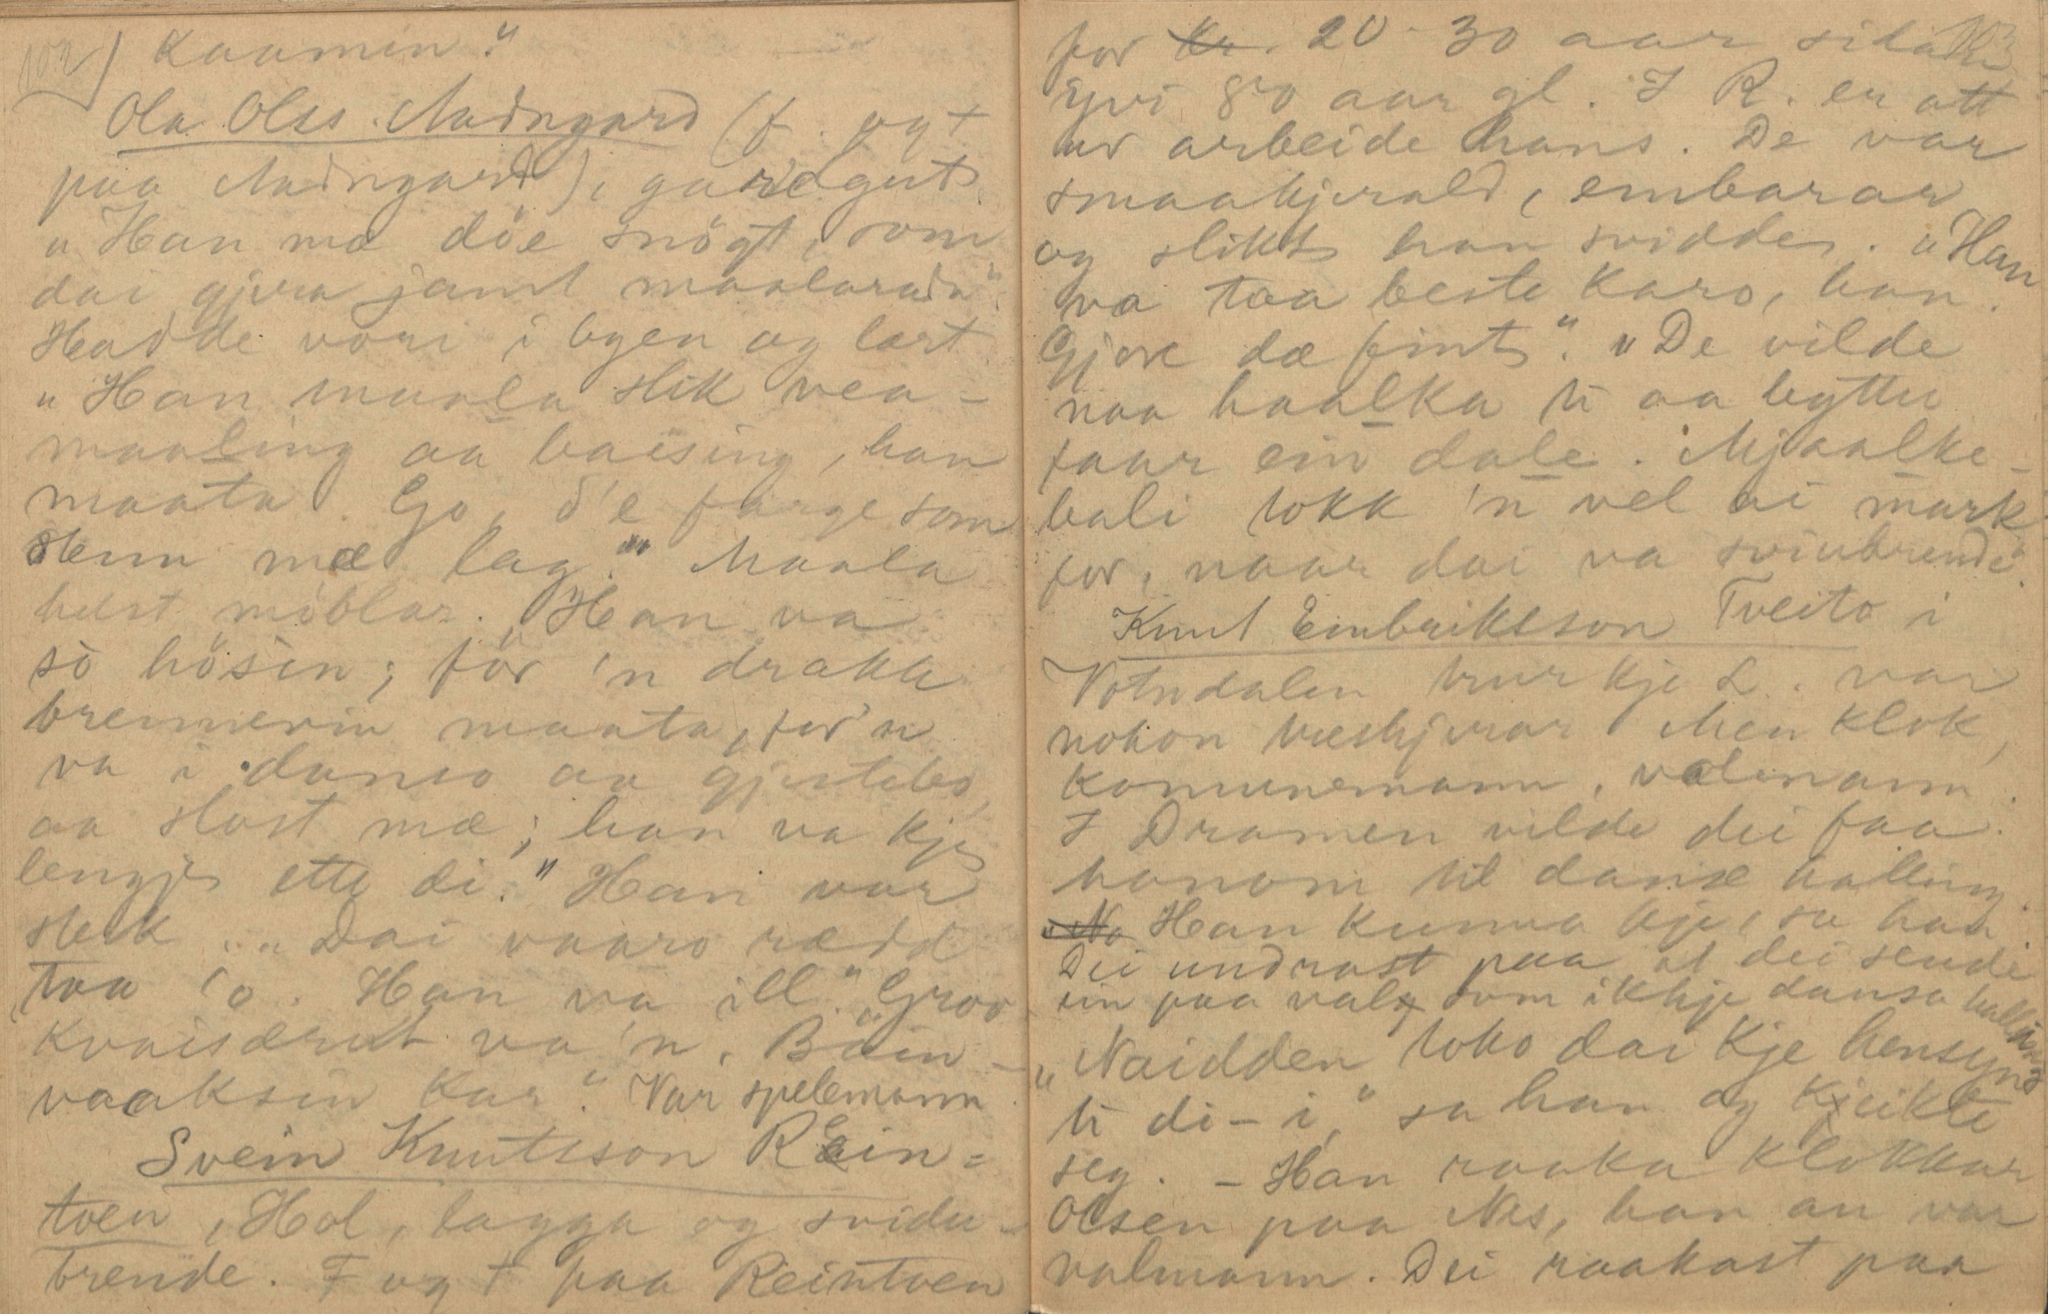 102) kaamin."
Ola Olss. Aadngard (f. og †
paa Aadngard), gardgut.
"Han mæ döe snögt, som
dai gjera jamt maalarada".
Hadde vori i byen og lært.
"Han maala slik vea-
maaling aa baising, han
maata. Go, d'e farge som
stenn mæ lag."" Maala
helst möblar. "Han va
sò hösin; för 'n drakk
brennevin maata, for 'n
va i danso aa gjestebo,
aa slost mæ; han va kje
lengje ette di." Han var
sterk. "Dai vaaro rædd
taa 'o. Han va ill." "Grov
va 'n. Bein-
vaaksin kar". Var spelemann.
Svein Knutsson Rein-
toen, Hol, lagga og svidu-
brende. F og † paa Reintoen
for 20-30 aar sidan 103
Yvi 80 aar gl. I R. er att
av arbeide hans. De var
smaakjerald, embarar
og slikt han svidde. "Han
va taa beste karo, han
gjore dæ fint". "De vilde
naa haalka ti aa bytte
faar ein dale. Mjaalke-
bali tokk 'n vel ai mark
for, naar dai va sviubrende".
Knut Embriksson Tveito i
Votndalen trur kje L. var
nokon treskjerar. Men klok,
komunemann, valmann.
I Dramen vilde dei faa
honom til danse halling.
"Na Han kunna kje, sa han
Dei undrast paa at dei sende
ein paa valg som ikkje dansa halling
"Naidden toko dai kje hensyn
ti di-i," sa han og kjeikte
seg. - Han raaka klokkar
Olsen paa Nes, han au var
valmann. Dei raakast paa